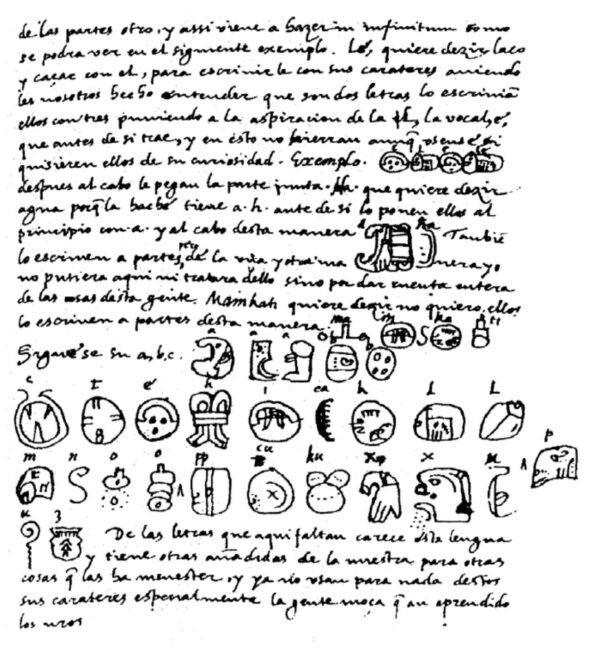 de las partes otro, y assi viene a hazer in infinitum como
se podra ver en el siguiente exemplo. Lé, quiere dezir laço
y caçar con el, para escrivirle con sus carateres aviendo
les nosotros hecho entender que son dos letras lo escrivian
ellos con tres puniendo a la aspiracion de la l, la vocal, é,
que antes de si trae, y en esto no hierran aunq̃ si
quisieren ellos de su curiosidad. Exemplo.
despues al cabo le pegan la parte junta. Ha. que quiere dezir
agua porq̃ la haché tiene a. h. ante de si lo ponen ellos al
principio con a. y al cabo desta manera a ha Tambiē
lo escriven a partes de la una y otra ma nera yo
no pusiera aqui ni tratara dello sino por dar cuenta entera
de las cosas desta gente. Mainkati quiere dezir no quiero, ellos
lo escriven a partes desta manera. ma i n ka ti
Siguese su a, b, c. a a a b b
c t é h i ca k l l
m n o o pp cu ku x x u p
u z De las letras que aqui faltan carece esta lengua
y tiene otras añadidas de la nuestra para otras
cosas q̃ las ha menester, y ya no usan para nada destos
sus carateres especialmente la gente moça q̃ an aprendido
los nros